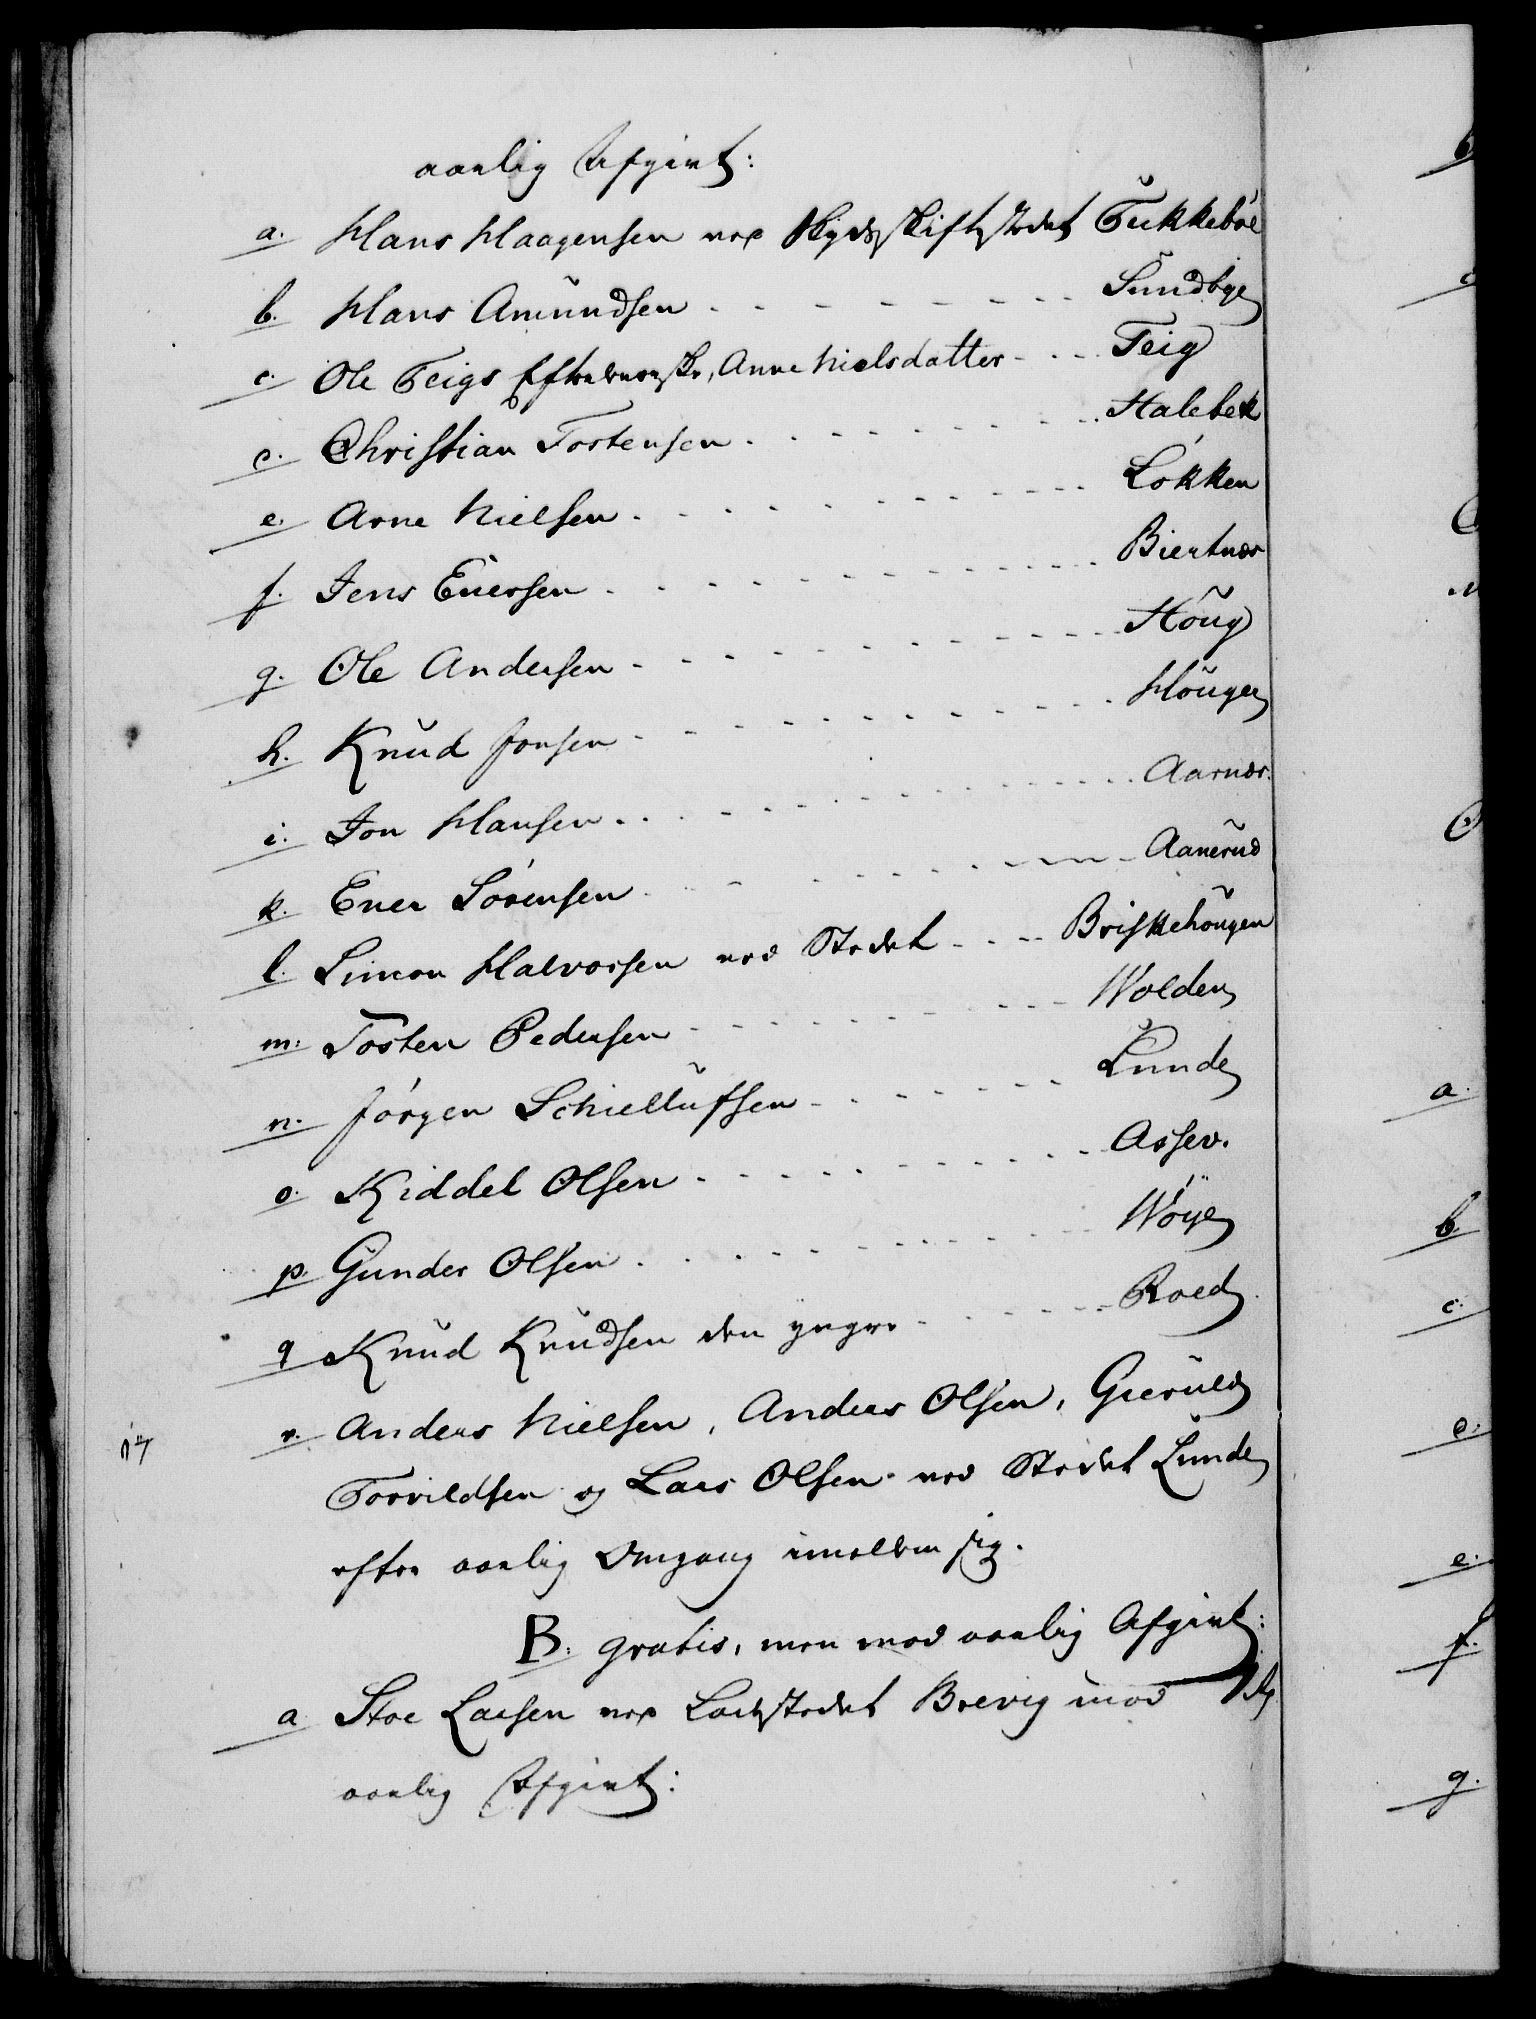 aarlig Afgivt:
a. Hans Haagensen ved Skydsskiftstedet Tukkeböe
b. Hans Amundsen - - - - - - - - - Sundbye
c. Ole Teigs Efterleverske, Anne Nielsdatter - - - Teig
c. Christian Tostensen - - - - - - - - Halebek
e. Arne Nielsen - - - - - - - - - Lökken
f. Jens Evessen - - - - - - - - - Biertnær
g. Ole Andersen - - - - - - - - - Houg
h. Knud Jonsen - - - - - - - - - Hougen
i. Jon Hansen - - - - - - - - - Aarnæs.
k. Ener Sörensen - - - - - - - - - Aanerud
l. Simon Halvorsen ved Stedet - - - Briskehougen
m. Tosten Pedersen - - - - - - - - Wolden
n. Jörgen Schiellufsen - - - - - - - Lunde
o. Kiddel Olsen - - - - - - - - - Assev.
p. Gunder Olsen - - - - - - - - - Wöye
q Knud Knudsen den yngre - - - - - Roed
r. Anders Nielsen, Anders Olsen, Gieruld
Torvildsen og Lars Olsen ved Stedet Lunde
efter aarlig Omgang imellem sig.
B. gratis, men mod aarlig Afgivt:
a Stoe Larsen ved Ladestedet Brevig imod
aarlig Afgivt:
b
c
a.
b.
c.
e.
f.
g.